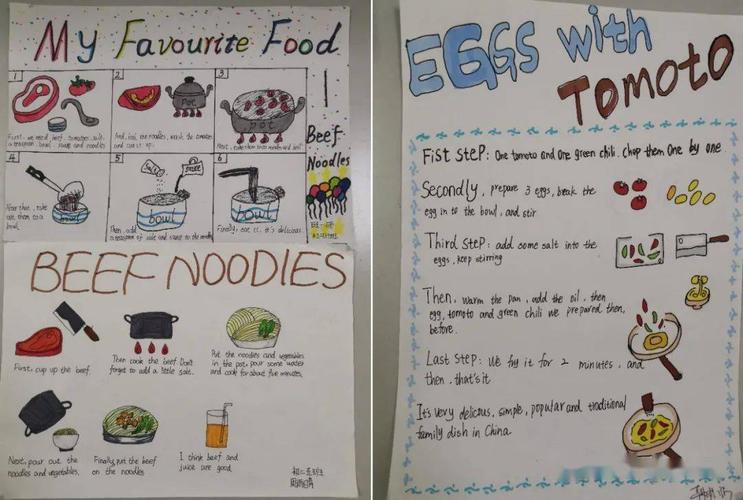 My Favourite Food
1
First, we need beef, tomatoes, salt,
a teaspoon, bowl, sauce and noodles
2
Pot
And, boil our noodles, wash the tomatoes
and cut it up.
3
pot
Next,
4
After that, take
out them to a
bowl.
5
Salt
sauce
bowl
Then, add
a teaspoon of salt and sauce to the noodles
6
bowl
Finally, eat it, it's delicious.
Beef
Noodles
BEEF NOODlES
First, cup up the beef.
Then cook the beef. Don't
forget to add a little salt.
Put the noodles and vegetables
in the pot, pour some water
and cook for about five minutes.
Next, pour out the
noodles and vegetables.
Finally, put the beef
on the noodles
I think beef and
juice are good.
EGGS with
TOMOTO
Fist steP: One tomato and one green chili, chop them one by one
Secondly, prepare 3 eggs, break the
egg in to the bowl, and stir
Third steP: add some salt into the
eggs, keep stirring
Then, warm the pan, add the oil, then
egg, tomoto and green chili we prepared then,
before.
Last steP: We fry it for 2 minutes, and
then, that's it
It's very delicious, simple, popular and traditional
family dish in China